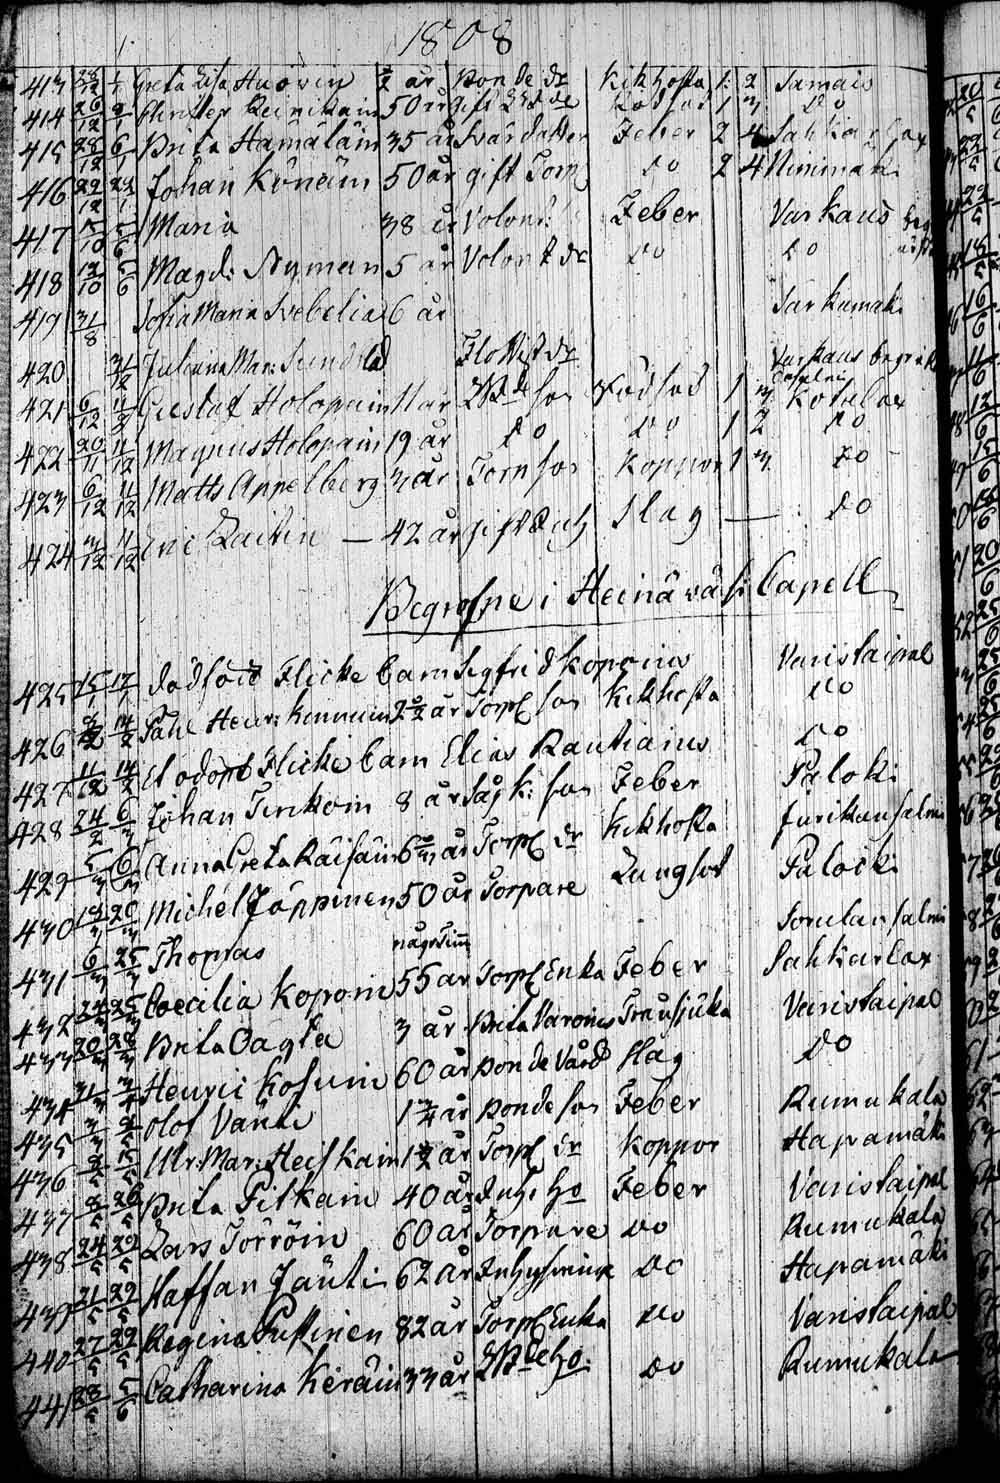 1808
413 28/12 1/1 Greta Lisa Huovin 3/4 år Bonde dr Kikhosta 1 2 Jamais
414 26/12 9/1 Christer Reinikain 50 år gift Rödsot 1 3 do
415 28/12 6/1 Brita Hämäläin 35 år Svärdotter Feber 2 4 Sahkarlax
416 29/12 24/1 Johan Könöin 50 år gift Torp do 2 4 Niinimäki
417 5/10 5/6 Maria 38 år Volont: Feber Varkaus
418 12/10 6/6 Magd: Nyman 5 år Volont dr do do
419 31/8 Sofia Maria Svebelia 6 år Sarkamäki
420 31/12 Juliana Mar: Sundsted Flottist dr Varkaus begrafd
421 6/12 11/2 Gustaf Holopain 11 år son Rödsot 1 3 Kotalax
422 20/11 11/12 Magnus Holopain 19 år do do 1 2 do
423 6/12 11/12 Matts Appelberg 3 år Torp son Koppor 1 3 do
424 3/12 11/12 Laitin — 42 år gift Inh Slag — do
Begrafne i Heinäväsi Capell
425 15/1 17/1 dödfödt Flicke barn Segfrid Koponius Varistaipal
426 14/2 Påhl Henr: Kinnunin 2 1/2 år Torp son Kikhosta do
427 11/12 14/2 Et odöpt Flicke barn Elias Rautiainus do
428 24/2 6/3 Johan Tirikoin 8 år son Feber Paloki
429 5/3 6/3 Anna Greta Räisäin 6 2/3 år Torp dr Kikhosta Jurikansalmi
430 18/3 20/3 Michel Jäppinen 50 år Torpare Lungsot Palocki
431 6/3 25/3 Thomas någr Tim Sorulansalmi
432 24/3 25/3 Caecilia Kopoin 55 år Torp Enka Feber Sahkarlax
433 20/3 28/3 Brita Cagsa 3 år Brita Varoines Transjuka Varistaipal
434 31/3 3/4 Henric Kosunin 60 år Bonde Värd Slag do
435 3/3 2/5 Olof Vänti 1 3/4 år Bonde son Feber Rumukala
436 9/5 15/5 Ulr: Mar: Heiskain 1 1/2 år Torp dr Koppor Hapamäki
437 8/5 26/5 Brita Pitkain 40 år Inh: ho Feber Varistaipal
438 24/5 29/5 Lars Törröin 60 år Torpare do Rumukala
439 21/5 29/5 Staffan Jänti 62 år Inhysing do Hapamäki
440 27/5 29/5 Regina Puttinen 82 år Torp Enka do Varistaipal
441 28/5 5/6 Catharina Keräin 33 år ho do Rumukala